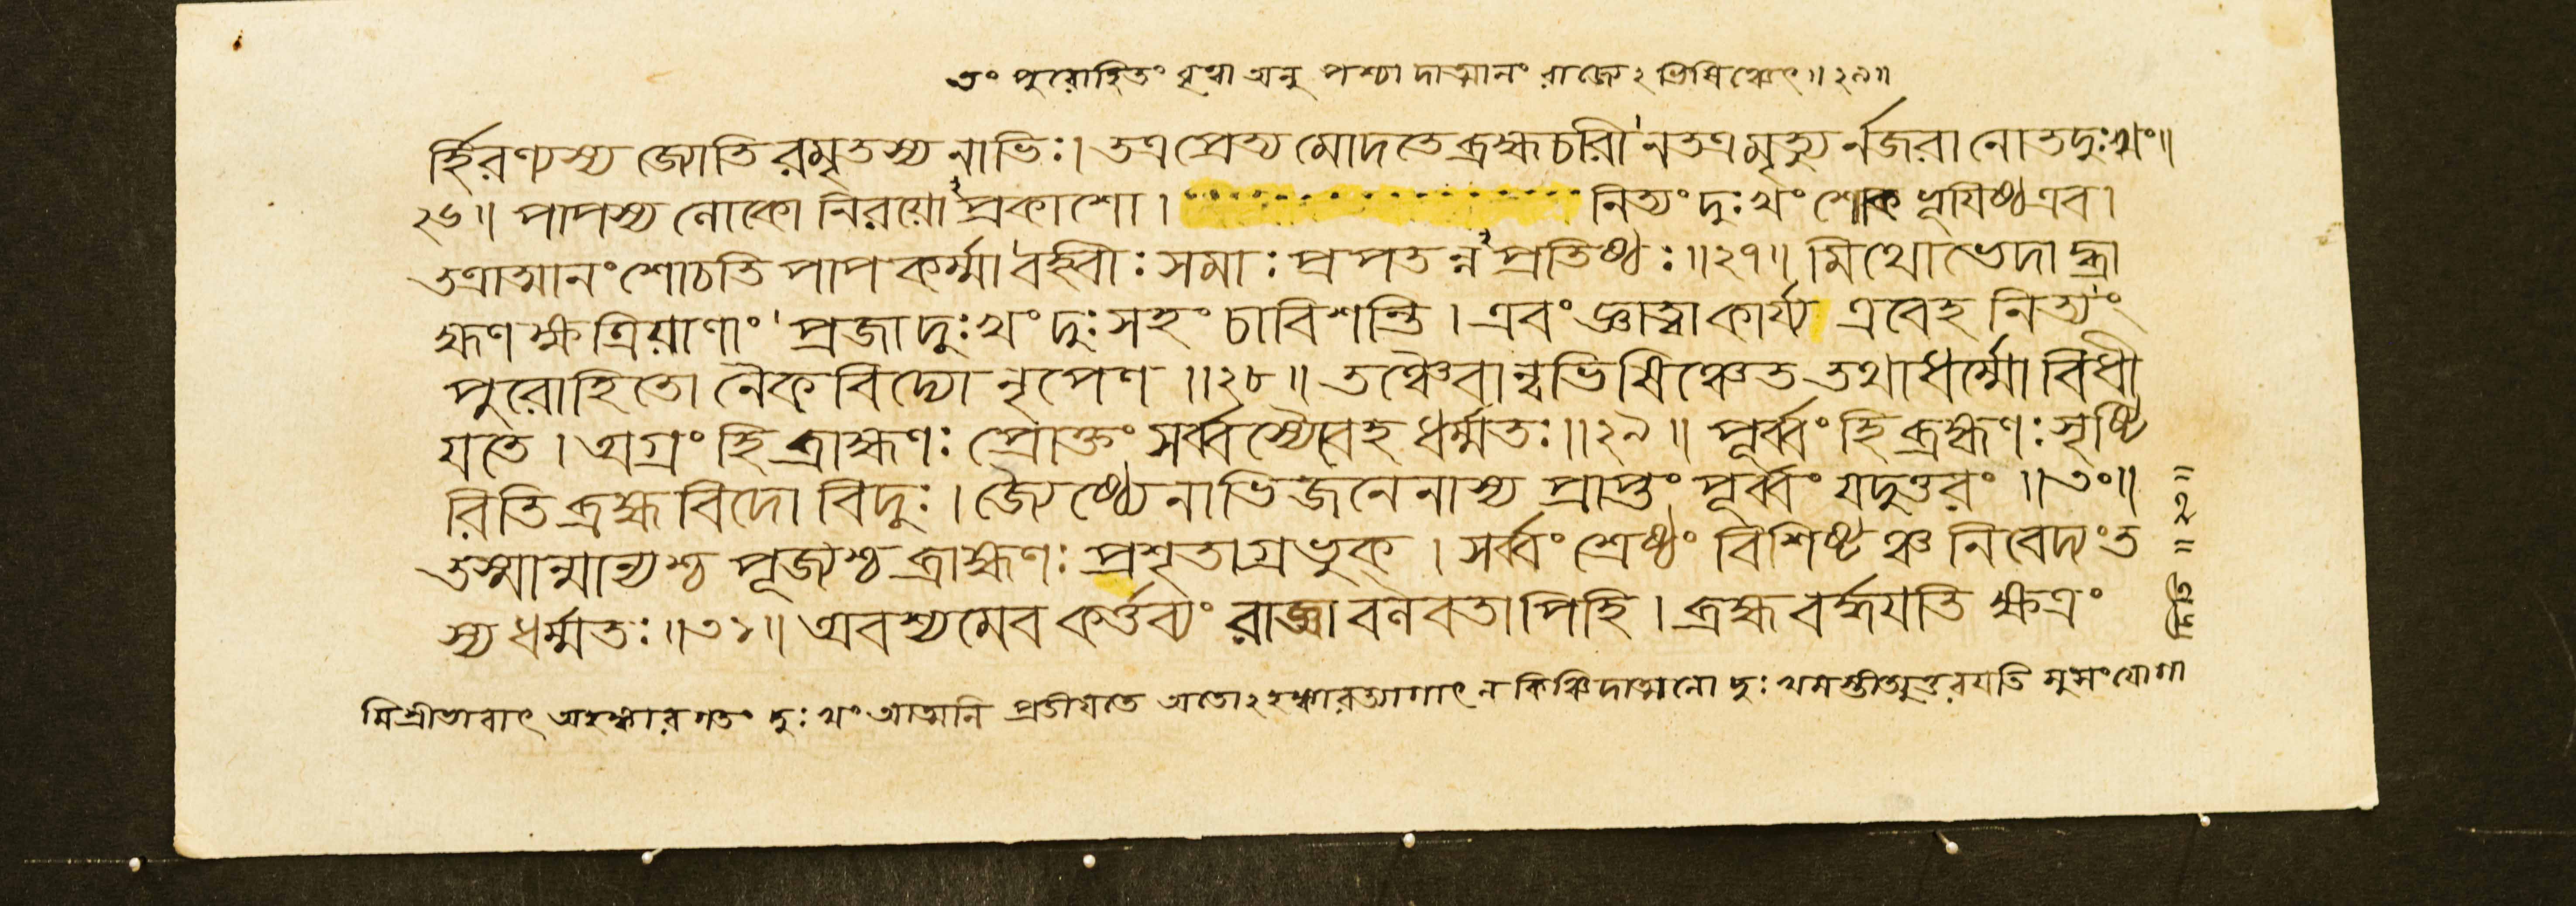 তং পুরোহিতং বৃত্বা অনু পশ্চাদাত্মানং রাজ্যেঽভিষিঞ্চেৎ॥২৯॥
র্হিরণ্যস্য জ্যোতিরমৃতস্য নাভিঃ। তত্র প্রেত্য মোদতে ব্রহ্মচারী ন তত্র মৃত্যুর্নজরা নোতদুঃখং॥
২৬॥ পাপস্য লোকো নিরয়োঽপ্রকাশো। নিত্যং দুঃখং শোক ভূয়িষ্ঠ এব।
তত্রাত্মানং শোচতি পাপকর্ম্মা বহ্বীঃ সমাঃ প্রপতন্নপ্রতিষ্ঠঃ॥২৭॥ মিথো ভেদাদ্ব্রা
হ্মণক্ষত্রিয়াণাং প্রজা দুঃখং দুঃসহং চাবিশন্তি। এবং জ্ঞাত্বা কার্য্য এবেহ নিত্যং
পুরোহিতো নৈকবিদ্যো নৃপেণ॥২৮॥ তঞ্চৈবান্বভিষিঞ্চেত তথা ধর্ম্মো বিধী
যতে। অগ্রং হি ব্রাহ্মণঃ প্রোক্তং সর্ব্বস্যৈবেহ ধর্ম্মতঃ॥২৯॥ পূর্ব্বং হি ব্রহ্মণঃ সৃষ্টি
রিতি ব্রহ্মবিদো বিদুঃ। জ্যৈষ্ঠ্যেনাভিজনেনাস্য প্রাপ্তং পূর্ব্বং যদুত্তরং॥৩০॥
তস্মান্মান্যশ্চ পূজ্যশ্চ ব্রাহ্মণঃ প্রশৃতাগ্রভুক্। সর্ব্বং শ্রেষ্ঠং বিশিষ্টঞ্চ নিবেদ্যং ত
স্য ধর্ম্মতঃ॥৩১॥ অবশ্যমেব কর্ত্তব্যং রাজ্ঞা বলবতাপি হি। ব্রহ্ম বর্দ্ধয়তি ক্ষত্রং
মিশ্রীভাবাৎ অহঙ্কারগতং দুঃখং আত্মনি প্রতীয়তে অতোঽহঙ্কারত্যাগাৎ ন কিঞ্চিদাত্মনো দুঃখমস্তীত্যুত্তরয়তি
॥২॥